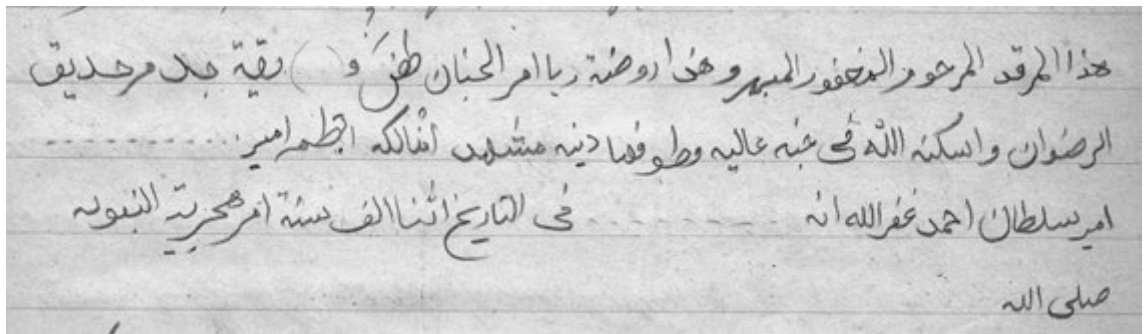 هذا المرقد المرحوم المغفور المبرور هذا روضة ريا امر الجنان طفئ و ( ) يقة جد مر حديق
الرضوان واسكنه الله فى غبه عاليه وطوفها دينه مشهد امير
امير سلطان احمد غفر الله انه ............ فى التاريخ اثنا الف سنة امر هجرية النبويه
صلى الله